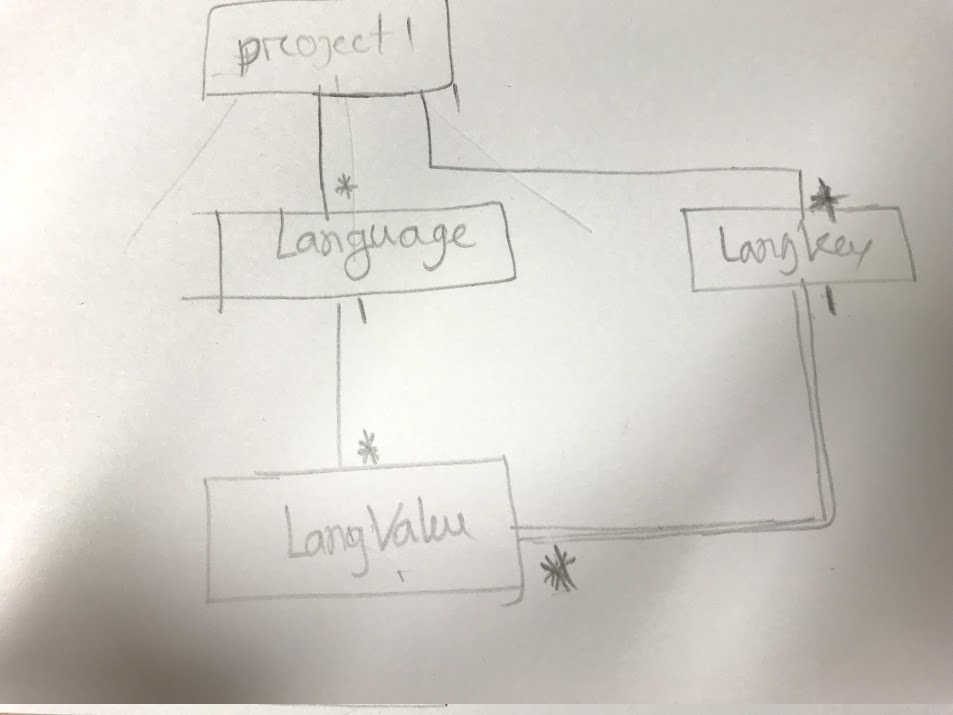 project 1
1
*
*
Language
Langkey
1
1
*
LangValeu
*